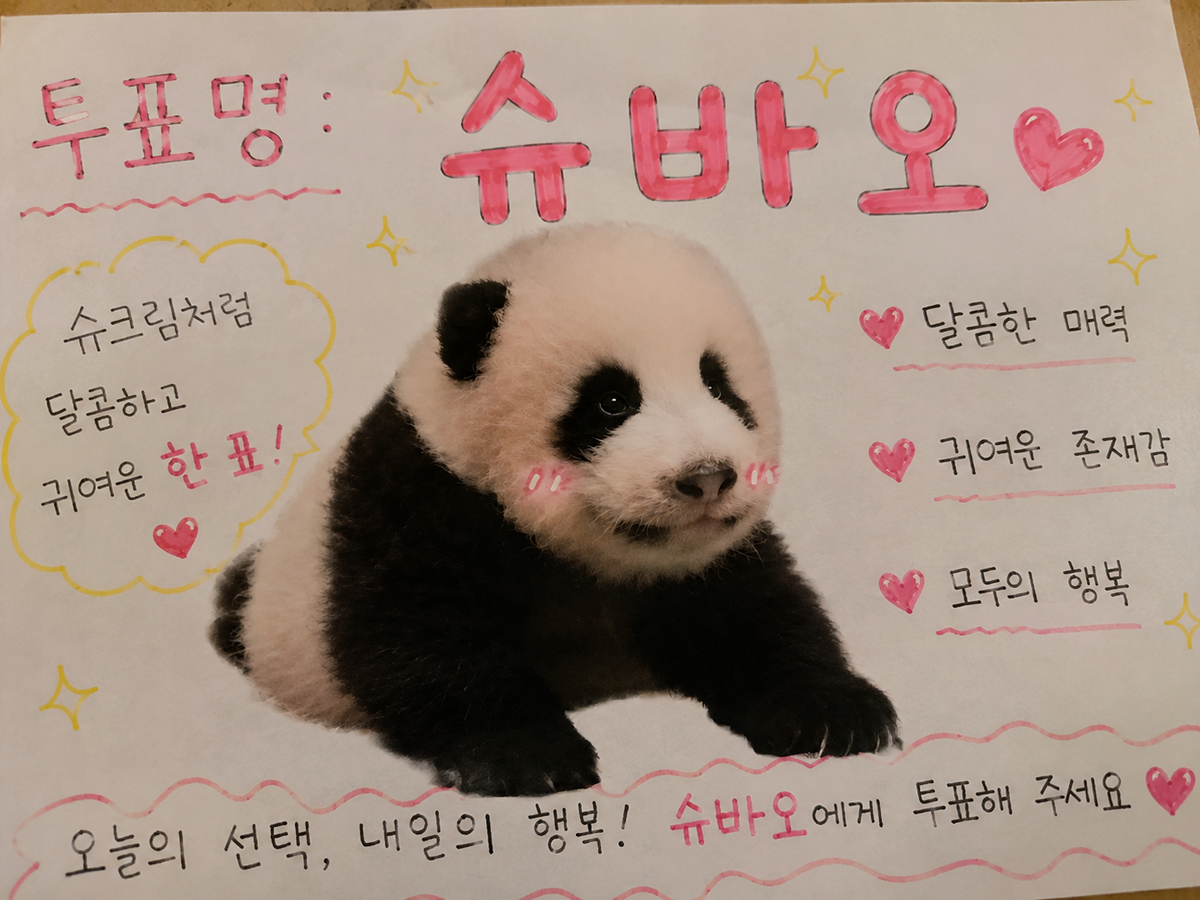 투표명: 슈바오
슈크림처럼
달콤하고
귀여운 한 표!
달콤한 매력
귀여운 존재감
모두의 행복
오늘의 선택, 내일의 행복! 슈바오에게 투표해 주세요